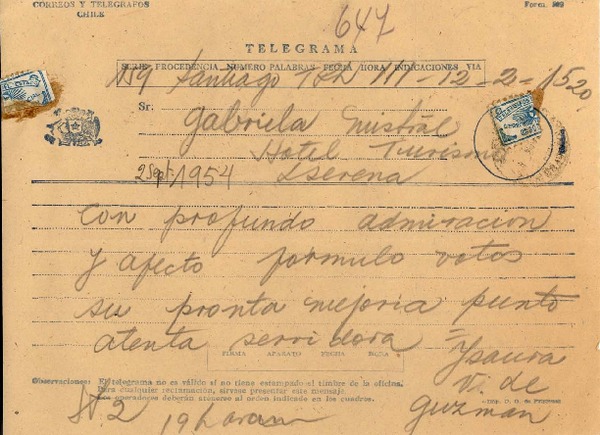 CORREOS Y TELEGRAFOS
CHILE
Form.
647
TELEGRAMA
SERIE PROCEDENCIA NUMERO PALABRAS FECHA HORA INDICACIONES VIA
159 Santiago 111-12-2-1520
Sr.
Gabriela Mistral
Hotel Turismo
2 Sept. 1954 Lserena
Con profundo admiracion
y afecto formulo votos
su pronta mejoria punto
atenta servidora =
Ysaura
V. de
guzman
FIRMA APARATO FECHA HORA
Observaciones: El telegrama no es válido si no tiene estampado el timbre de la oficina.
Para cualquier reclamación, sírvase presentar este mensaje.
Los operadores deberán atenerse al orden indicado en los cuadros.